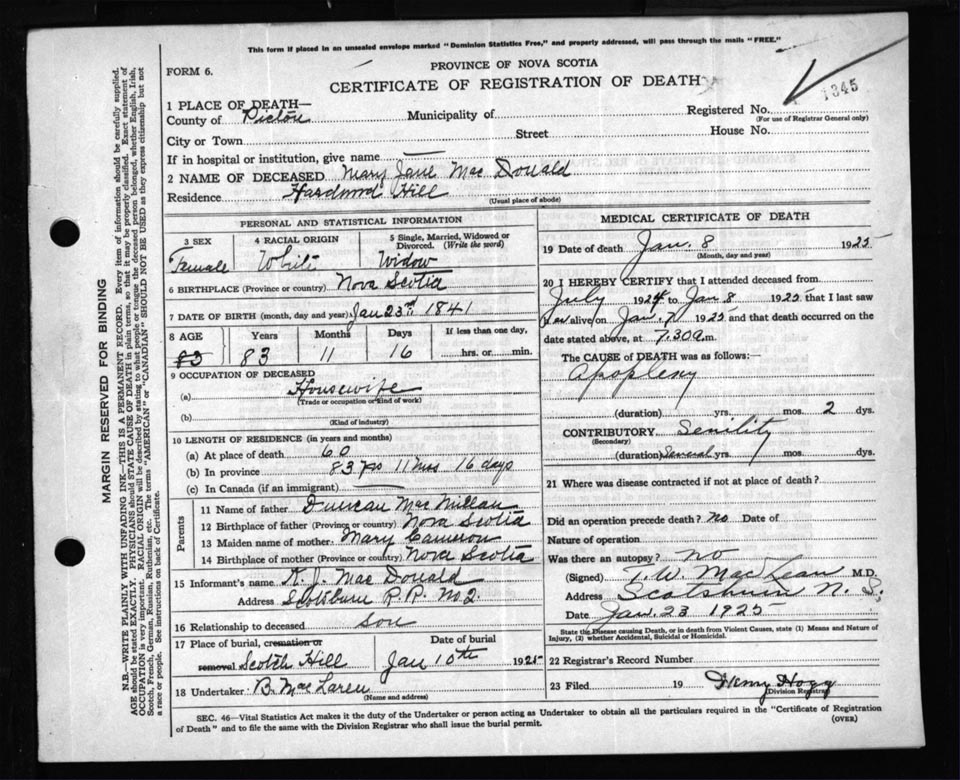 This form if placed in an unsealed envelope marked "Dominion Statistics Free," and properly addressed, will pass through the mails "FREE."
PROVINCE OF NOVA SCOTIA
FORM 6.
CERTIFICATE OF REGISTRATION OF DEATH
1345
1 PLACE OF DEATH—
County of Pictou Municipality of Registered No.
(For use of Registrar General only)
City or Town Street House No.
If in hospital or institution, give name —
2 NAME OF DECEASED Mary Jane MacDonald
Residence Hardwood Hill
(Usual place of abode)
PERSONAL AND STATISTICAL INFORMATION
3 SEX 4 RACIAL ORIGIN 5 Single, Married, Widowed or Divorced. (Write the word)
Female White Widow
6 BIRTHPLACE (Province or country) Nova Scotia
7 DATE OF BIRTH (month, day and year) Jan 23rd 1841
8 AGE Years Months Days If less than one day,
83 83 11 16 hrs. or min.
9 OCCUPATION OF DECEASED
(a) Housewife
(Trade or occupation or kind of work)
(b)
(Kind of industry)
10 LENGTH OF RESIDENCE (in years and months)
(a) At place of death 60
(b) In province 83 yrs 11 mos 16 days
(c) In Canada (if an immigrant) —
Parents
11 Name of father Duncan MacMillan
12 Birthplace of father (Province or country) Nova Scotia
13 Maiden name of mother Mary Cameron
14 Birthplace of mother (Province or country) Nova Scotia
15 Informant's name K. J. MacDonald
Address Scotsburn R.R. No 2.
16 Relationship to deceased son
17 Place of burial, cremation or removal Scotch Hill Date of burial Jan 10th 1925
18 Undertaker B. MacLaren
(Name and address)
MEDICAL CERTIFICATE OF DEATH
19 Date of death Jan. 8 1925
(Month, day and year)
20 I HEREBY CERTIFY that I attended deceased from
July 1924 to Jan. 8 1925 that I last saw
her alive on Jan. 7 1925 and that death occurred on
date stated above, at 7.30 a.m.
The CAUSE of DEATH was as follows:
Apoplexy
(duration) yrs. mos. 2 dys.
CONTRIBUTORY Senility
(Secondary)
(duration) Several yrs. mos. dys.
21 Where was disease contracted if not at place of death?
Did an operation precede death? no Date of
Nature of operation
Was there an autopsy? no
(Signed) T. W. MacLean M.D.
Address Scotsburn N. S.
Date Jan. 23 1925
State the Disease causing Death, or in death from Violent Causes, state (1) Means and Nature of Injury, (2) whether Accidental, Suicidal or Homicidal.
22 Registrar's Record Number
23 Filed 19 Henry Hogg
Division Registrar
SEC. 46—Vital Statistics Act makes it the duty of the Undertaker or person acting as Undertaker to obtain all the particulars required in the "Certificate of Registration
of Death" and to file the same with the Division Registrar who shall issue the burial permit. (OVER)
MARGIN RESERVED FOR BINDING
N.B.—WRITE PLAINLY WITH UNFADING INK—THIS IS A PERMANENT RECORD. Every item of information should be carefully supplied.
AGE should be stated EXACTLY. PHYSICIANS should STATE CAUSE OF DEATH in plain terms, so that it may be properly classified. Exact statement of
OCCUPATION is very important. RACIAL ORIGIN will be described by stating to what people or tongue the deceased person belonged, whether English, Irish,
Scotch, French, German, Russian, Ruthenian, etc. The terms "AMERICAN" or "CANADIAN" SHOULD NOT BE USED as they express citizenship but not
a race or people. See instructions on back of Certificate.